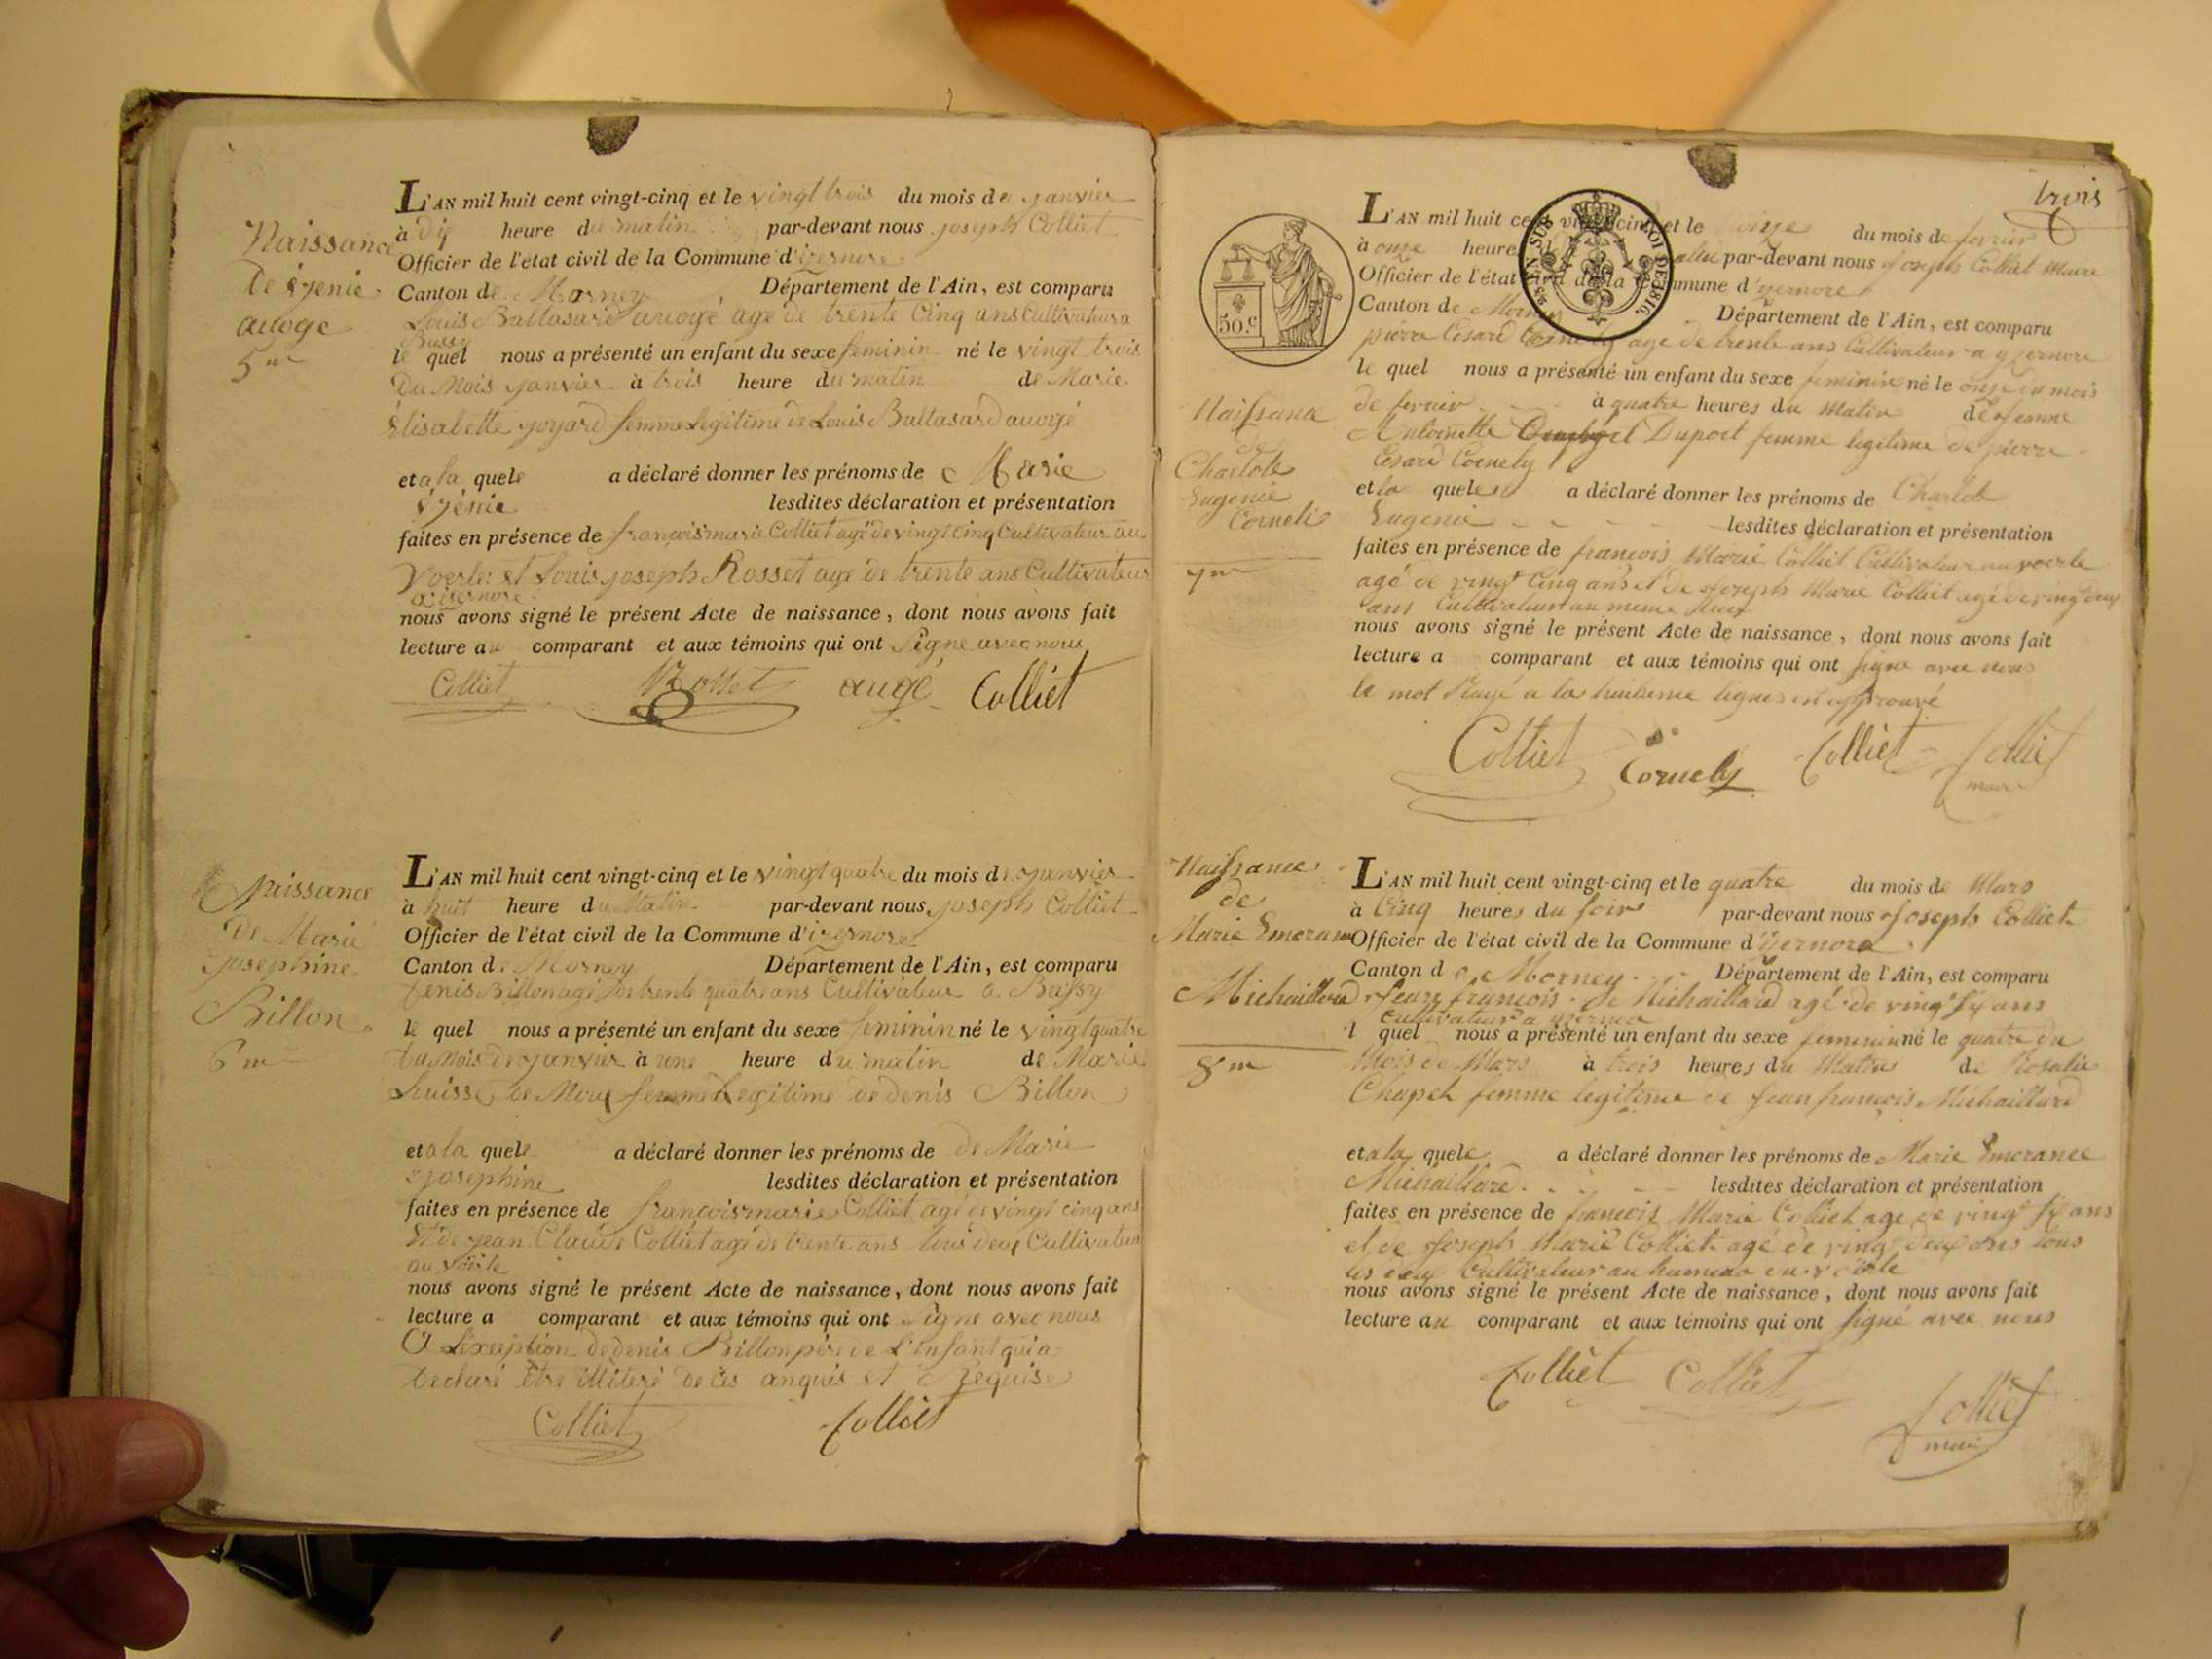 Naissance
de éjenie
auogé
5me
L'AN mil huit cent vingt-cinq et le vingt trois du mois de janvier
à dix heure du matin par-devant nous joseph Colliet
Officier de l'etat civil de la Commune d'izernore
Canton de Morney Département de l'Ain, est comparu
Louis Baltasard auogé agé de trente Cinq ans Cultivateur a
Bussy
le quel nous a présenté un enfant du sexe feminin né le vingt trois
Du Mois janvier à trois heure du matin de Marie
Élisabette joyard femme Legitime de Louis Baltasard auogé
et a la quele a déclaré donner les prénoms de Marie
éjénie lesdites déclaration et présentation
faites en présence de françois marie Colliet agé de vingt cinq Cultivateur au
Voerle et Louis joseph Rosset agé de trente ans Cultivateur
a isernore
nous avons signé le présent Acte de naissance, dont nous avons fait
lecture au comparant et aux témoins qui ont signe avec nous
Colliet Rosset augé Colliet
Naissance
De Marie
josephine
Billon
6me
L'AN mil huit cent vingt-cinq et le vingt quatre du mois de janvier
à huit heure du Matin par-devant nous joseph Colliet
Officier de l'état civil de la Commune d'izernore
Canton de Morney Département de l'Ain, est comparu
denis Billon agé de trente quatre ans Cultivateur a Bussy
le quel nous a présenté un enfant du sexe feminin né le vingt quatre
du Mois de janvier à une heure du matin de Marie
Louisse de Moux femme Legitime de denis Billon
et a la quele a déclaré donner les prénoms de de Marie
josephine lesdites déclaration et présentation
faites en présence de françois marie Colliet agé de vingt cinq ans
Et de jean Claude Colliet agé de trente ans tous deux Cultivateur
au Voerle
nous avons signé le présent Acte de naissance, dont nous avons fait
lecture a comparant et aux témoins qui ont signe avec nous
A L'exception de denis Billon père de L'enfant qui a
declaré être illiteré de ces anquis et Requise
Colliet Colliet
trois
50.c
EN SUS
LOI DE 1816.
Naissance
de
Charlote
Eugenie
Corneli
7me
L'AN mil huit cent vingt-cinq et le onze du mois de fevrier
à onze heure du matin par-devant nous Joseph Colliet Maire
Officier de l'état civil de la Commune d'yzernore
Canton de Morney Département de l'Ain, est comparu
pierre Cesard Cornely agé de trente ans Cultivateur a yzernore
le quel nous a présenté un enfant du sexe feminin né le onze du mois
de fevrier à quatre heures du Matin de Jeanne
Antoinette Duport femme legitime de pierre
Cesard Cornely
et la quele a déclaré donner les prénoms de Charlote
Eugenie lesdites déclaration et présentation
faites en présence de françois Marie Colliet Cultivateur au voerle
agé de vingt Cinq ans et de Joseph Marie Colliet agé de vingt deux
ans Cultivateur au meme lieux
nous avons signé le présent Acte de naissance, dont nous avons fait
lecture a comparant et aux témoins qui ont signé avec nous
le mot Rayé a la huitieme lignes est approuvé
Colliet Cornely Colliet Colliet
maire
Naissance
de
Marie Emerance
Michaillard
8me
L'AN mil huit cent vingt-cinq et le quatre du mois de Mars
à Cinq heures du soir par-devant nous Joseph Colliet
Officier de l'état civil de la Commune d'yzernore
Canton de Morney Département de l'Ain, est comparu
Jean françois Michaillard agé de vingt six ans
cultivateur a yzernore
l quel nous a présenté un enfant du sexe feminin né le quatre du
Mois de Mars à trois heures du Matin de Rosalie
Chapel femme legitime de Jean françois Michaillard
et a la quele a déclaré donner les prénoms de Marie Emerance
Michaillard lesdites déclaration et présentation
faites en présence de françois Marie Colliet agé de vingt six ans
et de Joseph Marie Colliet agé de vingt deux ans tous
les deux Cultivateur au hameau du voerle
nous avons signé le présent Acte de naissance, dont nous avons fait
lecture au comparant et aux témoins qui ont signé avec nous
Colliet Colliet Colliet
maire